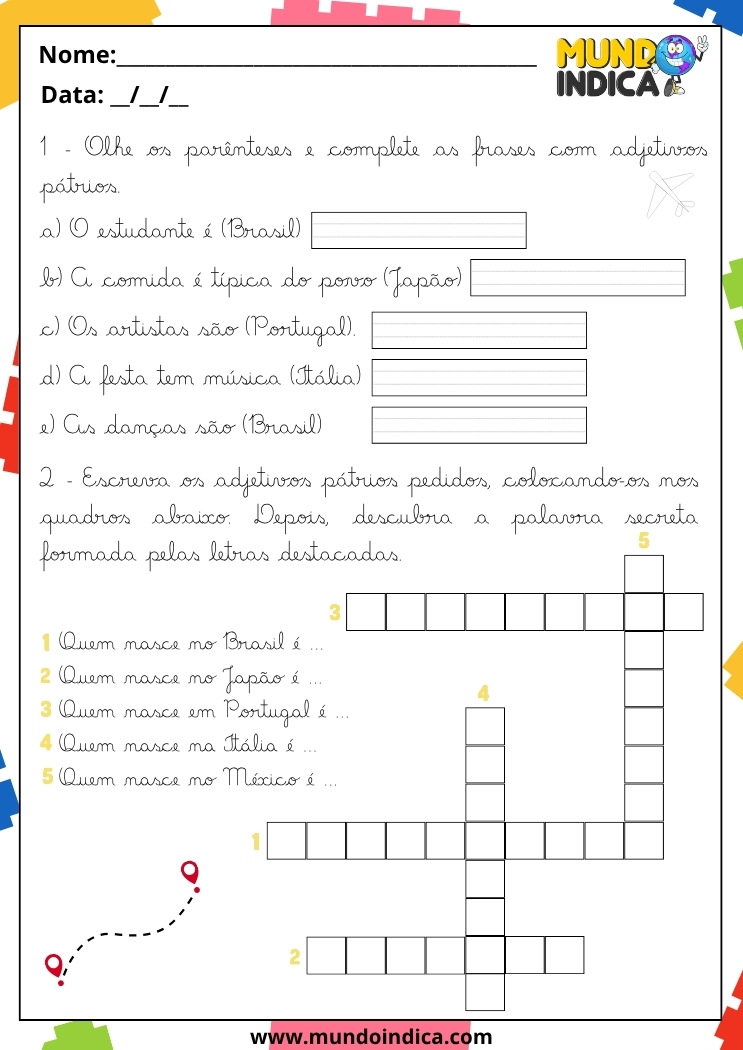 Nome:___________________________________
MUNDO
INDICA
Data: __/__/__
1 - Olhe os parênteses e complete as frases com adjetivos
pátrios.
a) O estudante é (Brasil)
b) A comida é típica do povo (Japão)
c) Os artistas são (Portugal).
d) A festa tem música (Itália)
e) As danças são (Brasil)
2 - Escreva os adjetivos pátrios pedidos, colocando-os nos
quadros abaixo. Depois, descubra a palavra secreta
formada pelas letras destacadas.
5
3
1 Quem nasce no Brasil é ...
2 Quem nasce no Japão é ...
3 Quem nasce em Portugal é ...
4 Quem nasce na Itália é ...
5 Quem nasce no México é ...
4
1
2
www.mundoindica.com